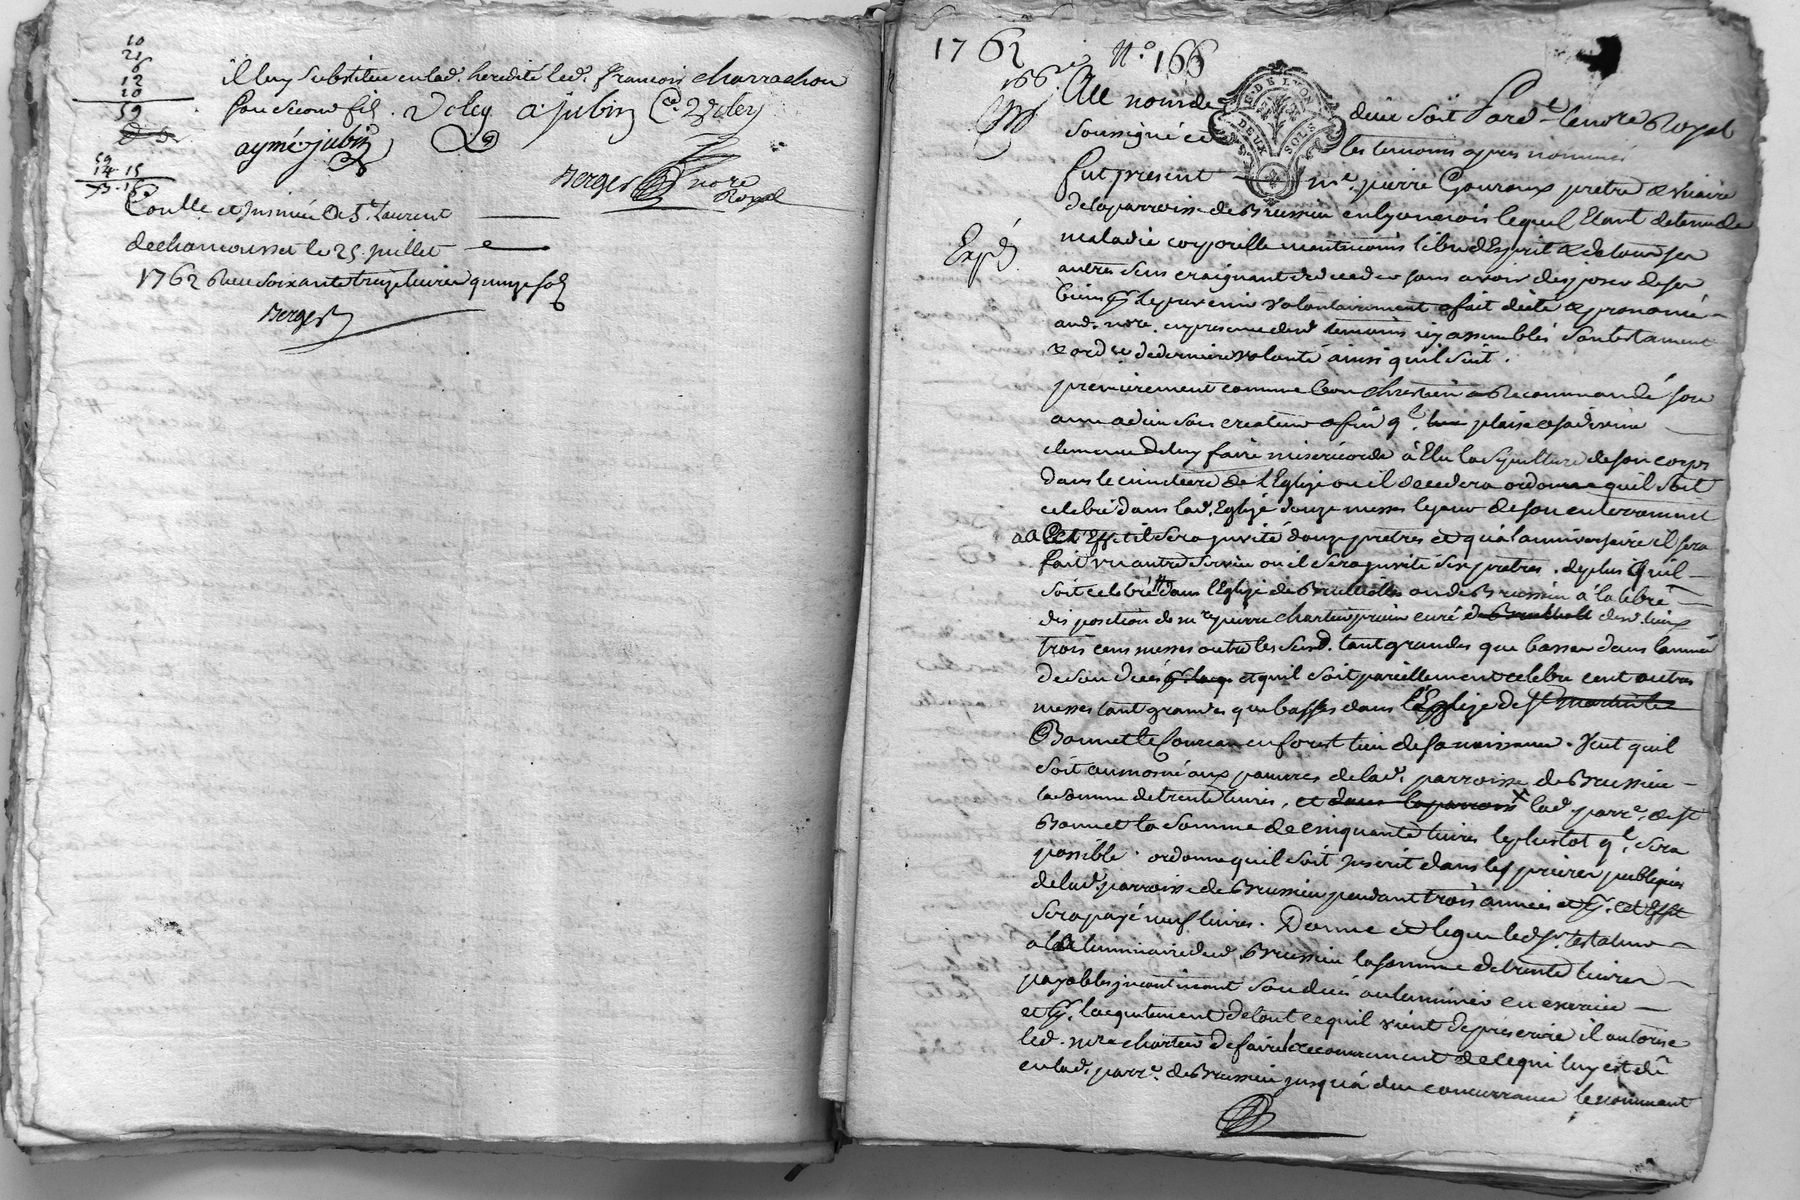 10
21
6
12
10
59
59
14 15
73 - 15
il luy substitue en lad. heredité led. françois charrachon
son second fil. Voley a. jubin Ce. Voley
aymé jubin
Berger nore
Royal
Conllé et insinué a St. Laurent
de chamousset le 25 juillet
1762 Reçu soixante treize livres quinze sols
Berger
1762 No. 166
166e
G. DE LYON
DEUX SOLS
Au nom de dieu soit Pard. le nore Royal
soussigné et les temoins apres nommés
Expé.
fut present me. pierre Gouroux pretre & vicaire
de la parroisse de Brussieu en lyonnois lequel Etant detenu de
maladie corporelle neantmoins libre d'Esprit & de tous ses
autres sens craignant de deceder sans avoir disposé de ses
biens pr. le prevenir volontairement a fait dicté & prononcé
aud. nore. en presence desd. temoins icy assemblés son testament
& ord. de derniere volonté ainsi quil suit.
premierement comme bon chrestien a Recommandé son
ame a dieu son createur afin ql. plaise a sa divine
clemence de luy faire misericorde à Elu la sepulture de son corps
dans le cimetiere de l'Eglise ou il decedera ordonne quil soit
celebré dans lad. Eglise douze messes le jour de son enterrement
a a Cet Effet il sera invité douze pretres et qu'a l'anniversaire il sera
fait un autre service ou il sera invité six pretres. de plus quil
soit celebré dans l'Eglise de Brullioles ou de Brussieu à la libre
disposition de mre pierre chartier prieur curé desd. lieux
trois cens messes outre les susd. tant grandes que basses dans l'année
de son decés et quil soit pareillement celebré cent autres
messes tant grandes que basses dans l'Eglise de St
Bonnet le Coureau en forest lieu de sa naissance. Veut quil
soit aumosné aux pauvres de lad. parroisse de Brussieu
la somme de trente livres, et lad. parre. de St
Bonnet la somme de cinquante livres le plustot ql. sera
possible. ordonne quil soit inscrit dans les prieres publiques
de lad. parroisse de Brussieu pendant trois années et pr. cet Effet
sera payé neuf livres. Donne et legue led. sr. testateur
a la luminaire dud. Brussieu la somme de trente livres
payables incontinent son decés au luminier en exercice
et pr. l'acquitement de tout ce quil vient de prescrire il autorise
led. mre chartier de faire le recouvrement de ce qui luy est dû
en lad. parre. de Brussieu jusqu'a due concurrance le nommant